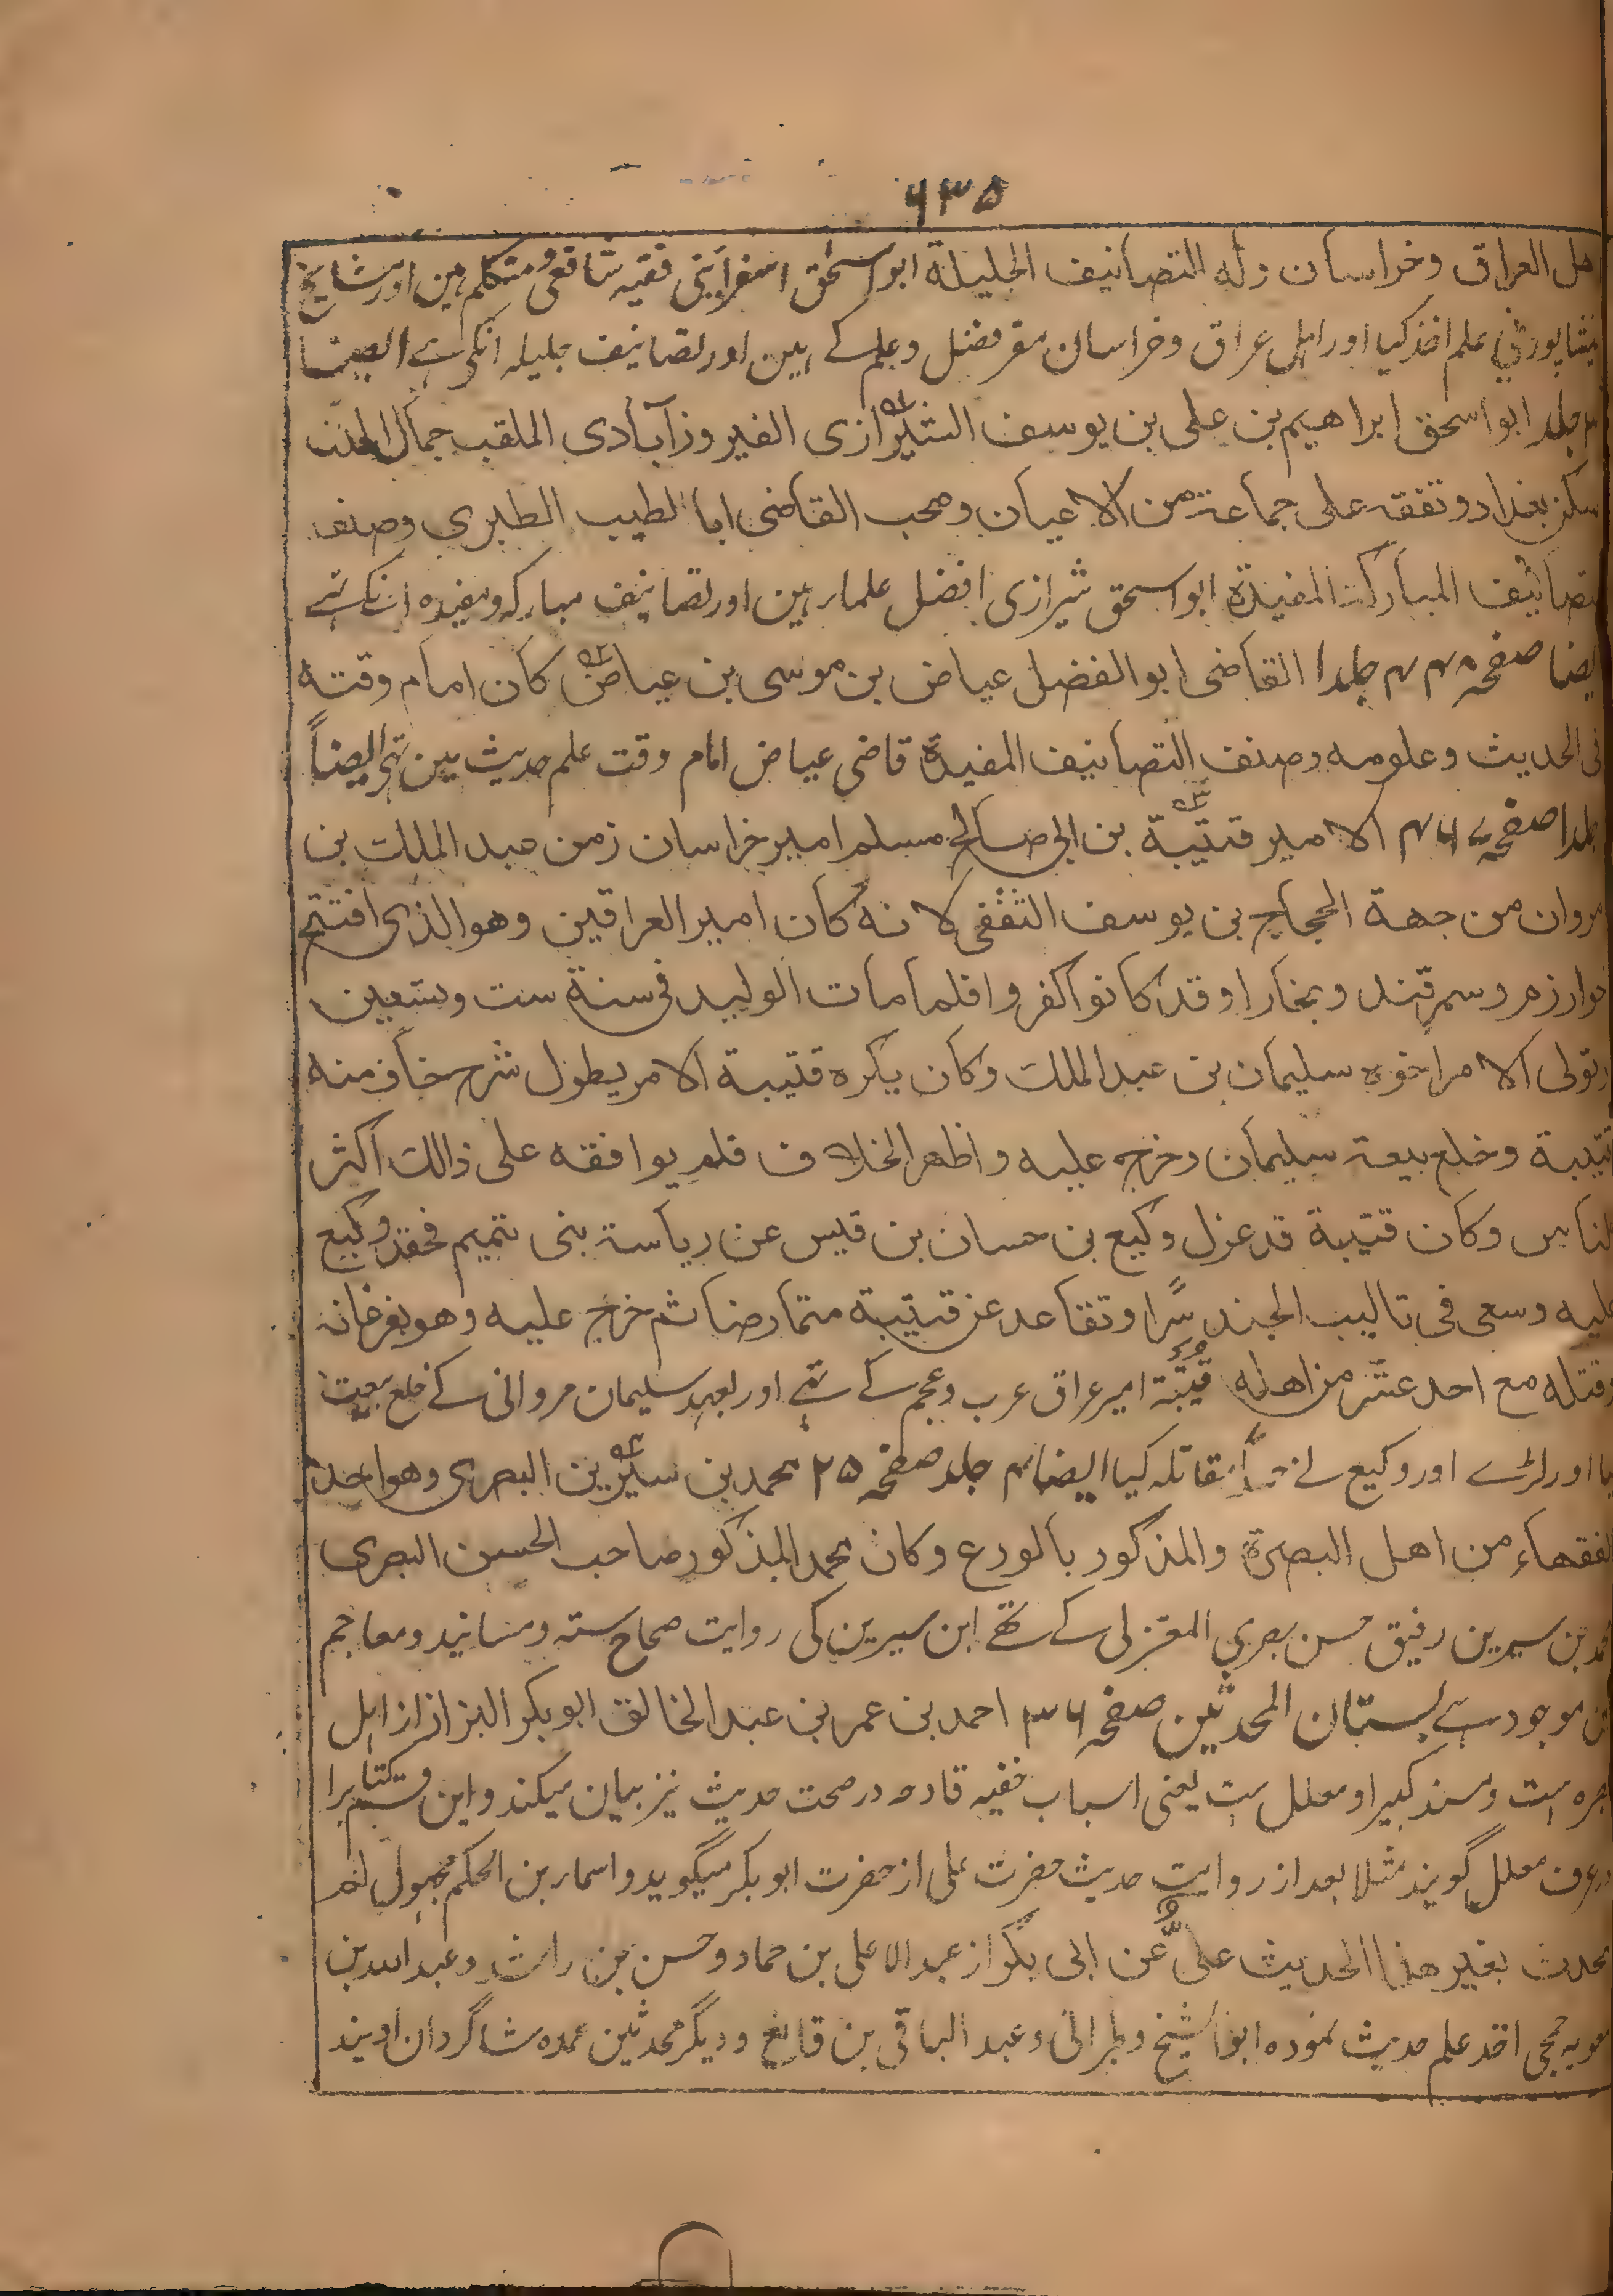 ۶۳۵
اهل العراق وخراسان وله التصانيف الجليلة ابو اسحٰق اسفرايني فقیہ شافعی و متکلم ہین اور مشایخ
نیشاپور نے علم اخذ کیا اور اہل عراق وخراسان مقر فضل وعلم کے ہین اور تصانیف جلیلہ انکی ہے ایضا
جلد ابو اسحق ابراهيم بن علی بن يوسف الشيرازی الفيروزآبادی الملقب جمال الدين
سكن بغداد وتفقه على جماعة من الاعيان وصحب القاضی ابا الطيب الطبری وصنف
التصانيف المباركة المفيدة ابو اسحق شیرازی افضل علماء ہین اور تصانیف مبارکہ ومفیدہ انکے تہے
ایضا صفحہ جلد ا القاضی ابو الفضل عياض بن موسى بن عياض كان امام وقته
فی الحديث وعلومه وصنف التصانيف المفيدة قاضی عیاض امام وقت علم حدیث مین تہے ایضاً
جلد ا صفحہ الامير قتيبة بن ابی صالح مسلم امير خراسان زمن عبد الملك بن
مروان من جهة الحجاج بن يوسف الثقفی لانه كان امير العراقين وهو الذی افتتح
خوارزم وسمرقند وبخارا وقد كانوا كفروا فلما مات الوليد فی سنة ست وتسعين
وتولی الامر اخوه سليمان بن عبد الملك وكان يكره قتيبة الامر يطول شرح خاف منه
قتيبة وخلع بيعة سليمان وخرج عليه واظهر الخلاف فلم يوافقه على ذالك اكثر
الناس وكان قتيبة قد عزل وكيع بن حسان بن قيس عن رياسة بنی تميم فحقد وكيع
عليه وسعى فی تاليب الجند سرًا وتقاعد عن قتيبة متمارضا ثم خرج عليه وهو بفرغانة
وقتله مع احد عشر من اهله قتیبۃ امیر عراق عرب وعجم کے تہے اور بعہد سلیمان مروانی کے خلع بیعت
کیا اور لڑے اور وکیع نے مقاتلہ کیا ایضا جلد صفحہ ۲۵ محمد بن سيرين البصری وهو احد
الفقهاء من اهل البصرة والمذكور بالورع وكان محمد المذكور صاحب الحسن البصری
محمد بن سیرین رفیق حسن بصری المعتزلی کے تھے ابن سیرین کی روایت صحاح ستہ ومسانید ومعاجم
مین موجود ہے بستان المحدثین صفحہ ۳۶ احمد بن عمر بن عبد الخالق ابو بکر البزاز از اہل
بصرہ است ومسند کبیر او معلل ست یعنی اسباب خفیہ قادحہ در صحت حدیث نیز بیان میکند واین قسم کتاب را
در عرف معلل گویند مثلا بعد از روایت حدیث حضرت علی از حضرت ابو بکر میگوید واسماء بن الحکم مجہول لم
يحدث بغير هذا الحديث علیّ عن ابی بکر از عبد الاعلی بن حماد وحسن بن راشد وعبد اللہ بن
معویہ جمحی اخذ علم حدیث نمودہ ابو الشیخ وطبرانی وعبد الباقی بن قانع ودیگر محدثین عمدہ شاگردان اویند